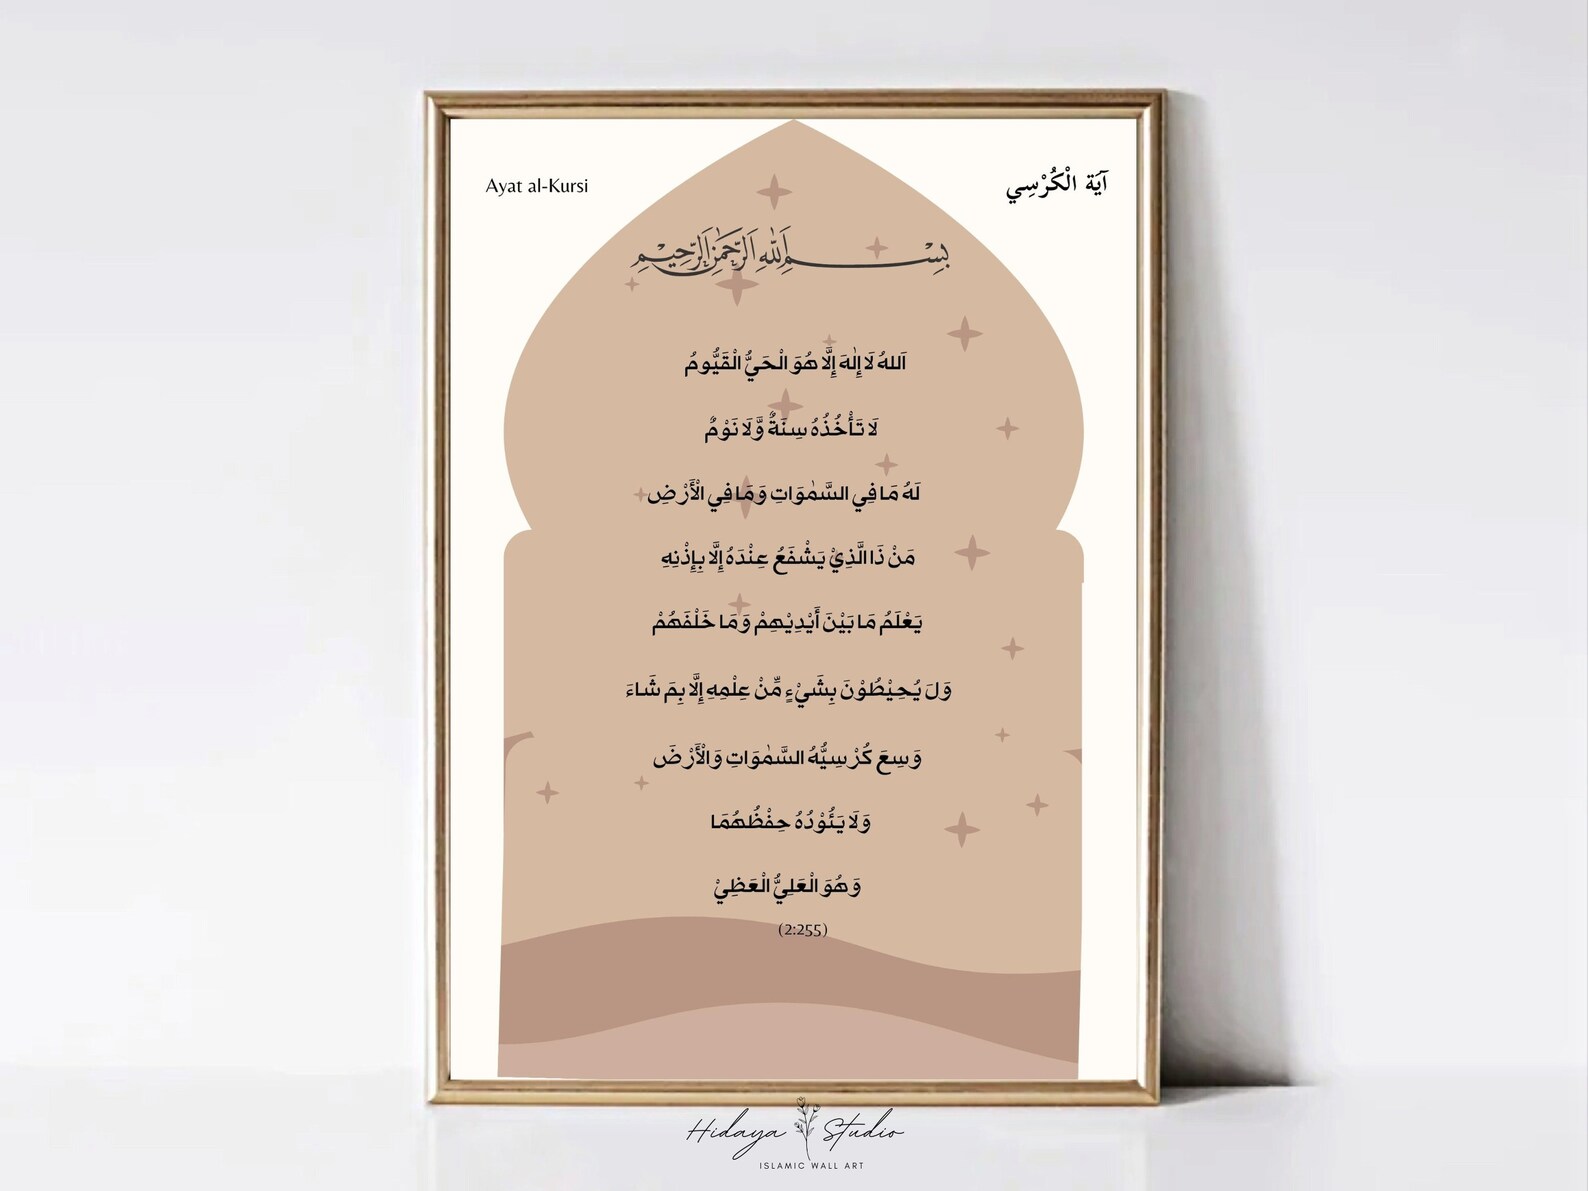 Ayat al-Kursi
آيَة الْكُرْسِي
بِسْمِ اللهِ الرَّحْمٰنِ الرَّحِيْمِ
اَللهُ لَا إِلٰهَ إِلَّا هُوَ الْحَيُّ الْقَيُّومُ
لَا تَأْخُذُهُ سِنَةٌ وَّلَا نَوْمٌ
لَهُ مَا فِي السَّمٰوَاتِ وَمَا فِي الْأَرْضِ
مَنْ ذَا الَّذِيْ يَشْفَعُ عِنْدَهُ إِلَّا بِإِذْنِهِ
يَعْلَمُ مَا بَيْنَ أَيْدِيْهِمْ وَمَا خَلْفَهُمْ
وَلَ يُحِيْطُوْنَ بِشَيْءٍ مِّنْ عِلْمِهِ إِلَّا بِمَ شَاءَ
وَسِعَ كُرْسِيُّهُ السَّمٰوَاتِ وَالْأَرْضَ
وَلَا يَئُوْدُهُ حِفْظُهُمَا
وَهُوَ الْعَلِيُّ الْعَظِيْ
(2:255)
Hidaya Studio
ISLAMIC WALL ART